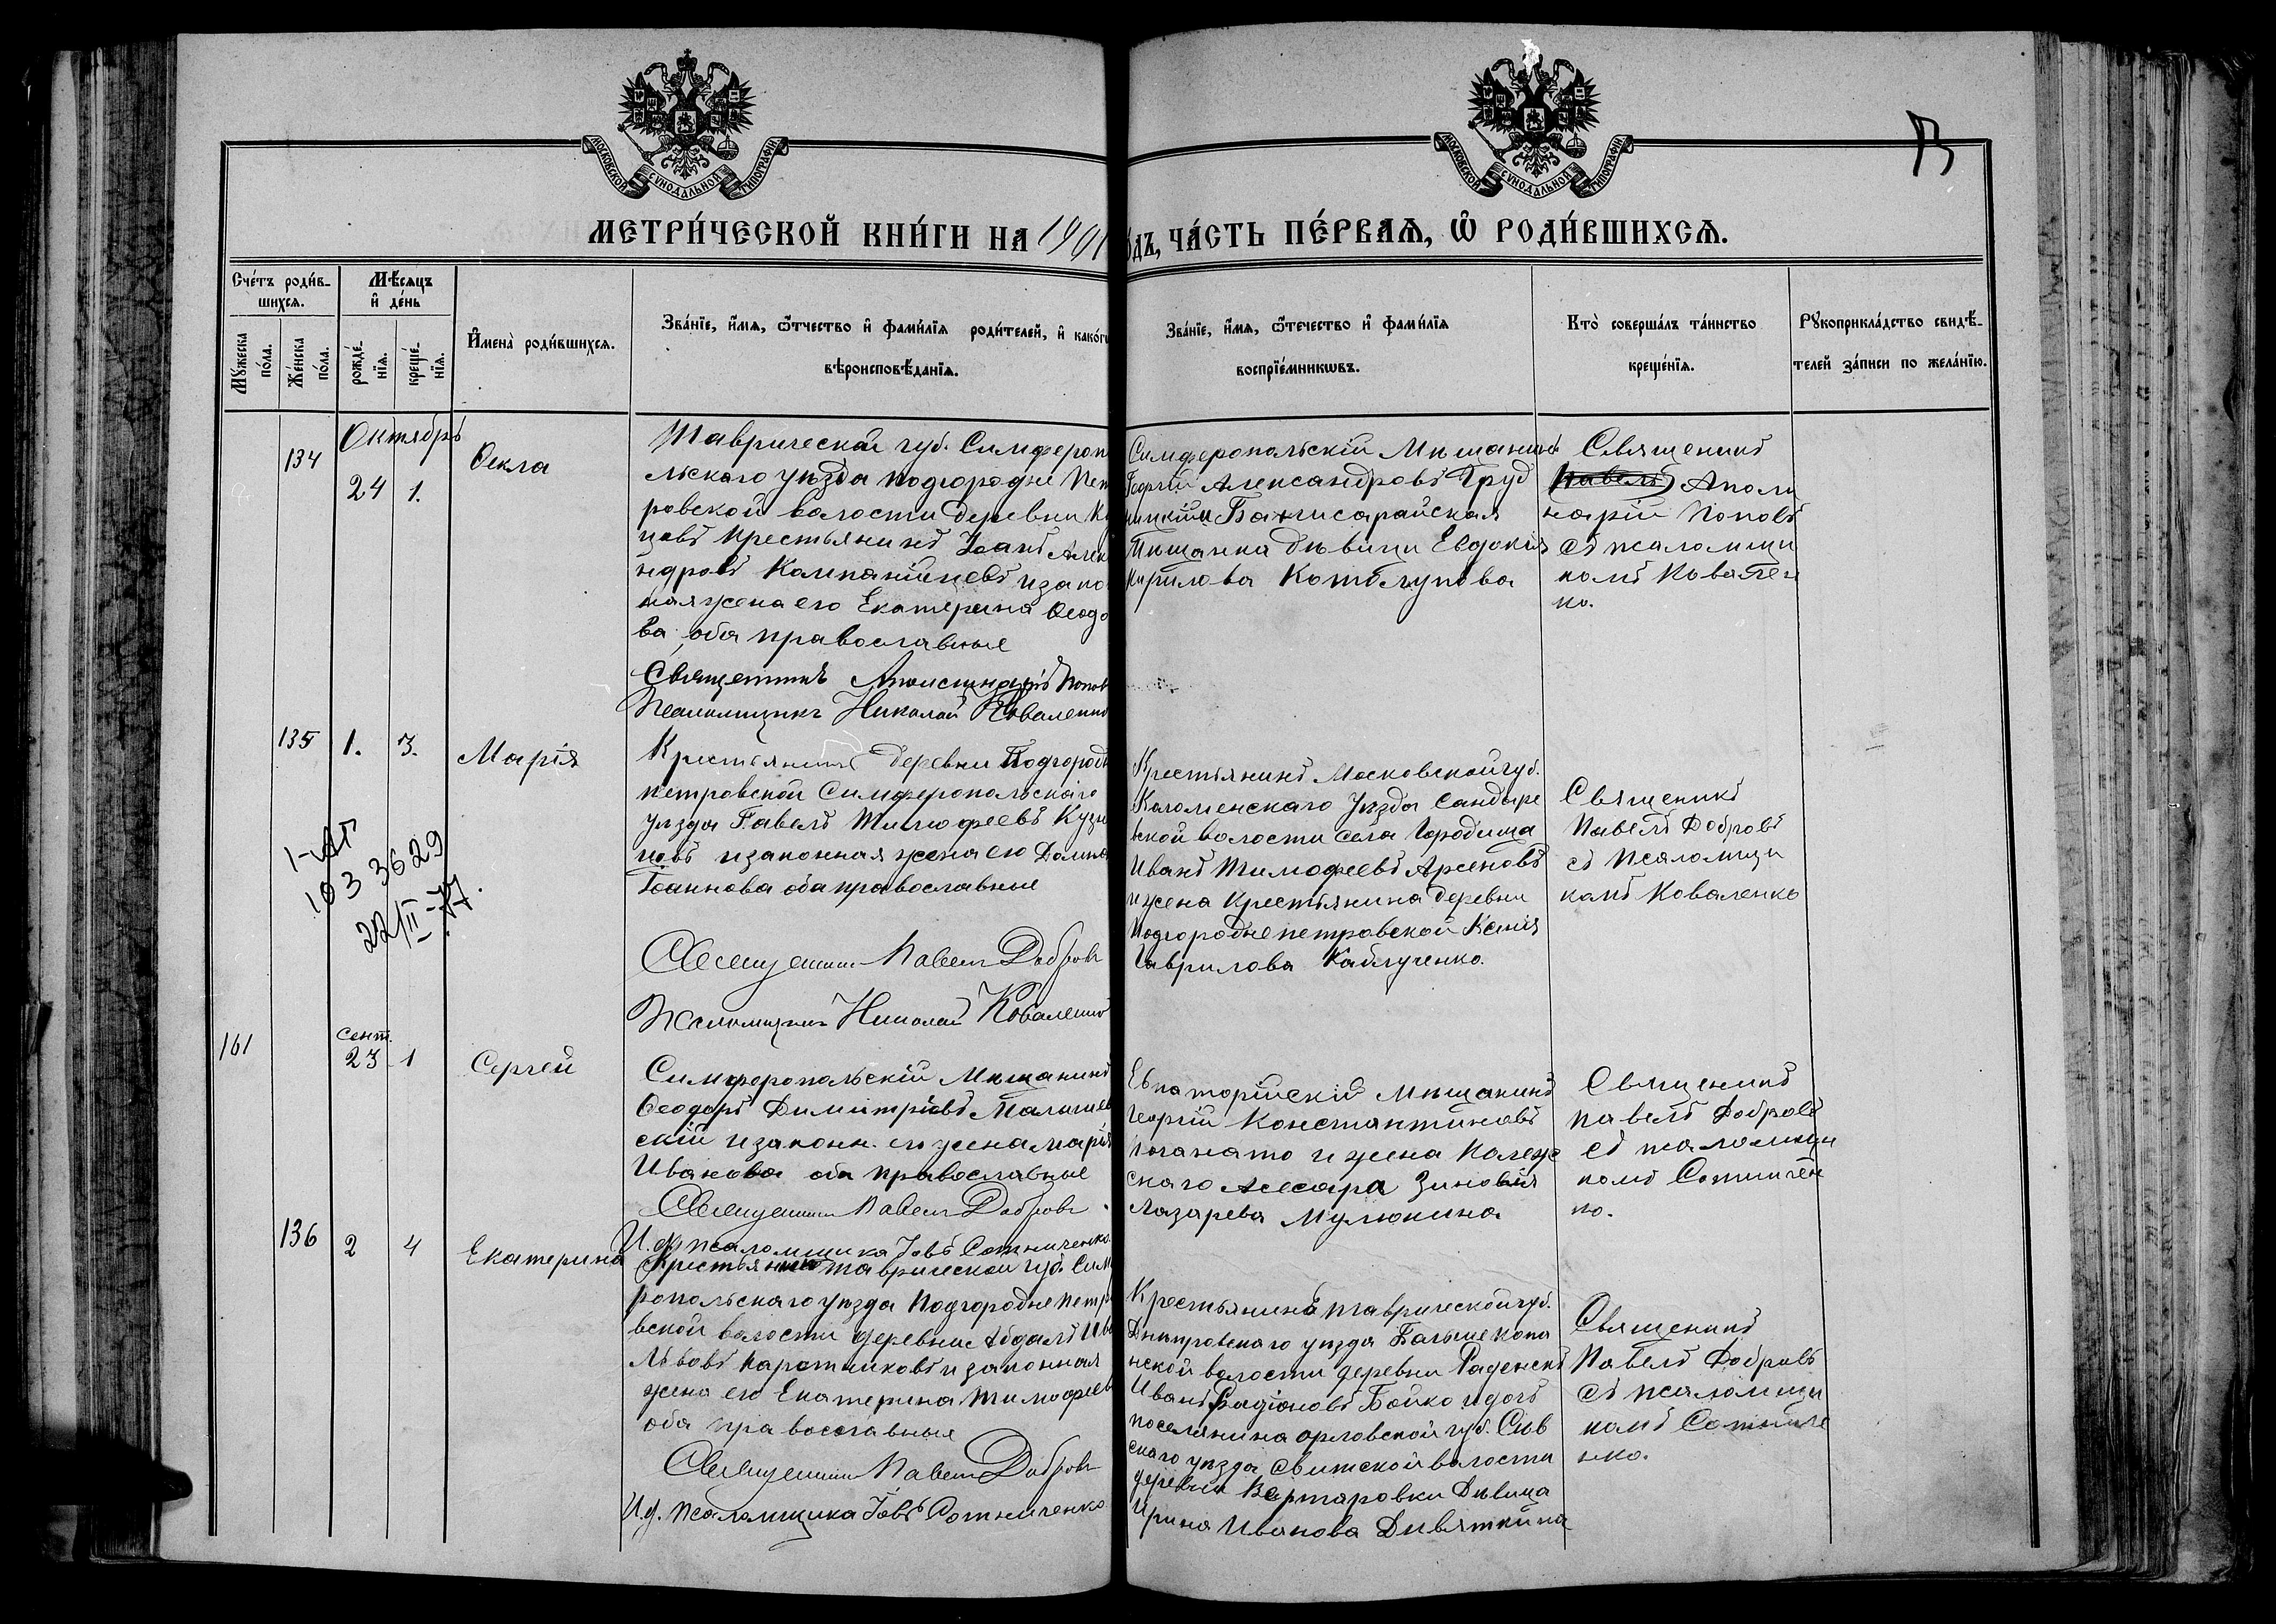 МОСКОВСКОЙ СУНОДАЛЬНОЙ ТИПОГРАФІИ
МОСКОВСКОЙ СУНОДАЛЬНОЙ ТИПОГРАФІИ
МЕТРИ́ЧЕСКОЙ КНИ́ГИ НА 1901
о́дъ, ЧА́СТЬ ПЕ́РВАѦ, Ѡ҆ РОДИ́ВШИХСѦ.
Сче́тъ роди́в-
шихсѧ.
Мѣ́сѧцъ
и҆ де́нь
Мꙋ́жеска
по́ла.
Же́нска
по́ла.
рожде́-
нїѧ.
креще́-
нїѧ.
И҆мена̀ роди́вшихсѧ.
Зва́нїе, и҆́мѧ, ѻ҆́тчество и҆ фами́лїѧ роди́телей, и҆ како́гѡ
вѣроисповѣ́данїѧ.
Зва́нїе, и҆́мѧ, ѻ҆те́чество и҆ фами́лїѧ
воспрїе́мникѡвъ.
Кто̀ соверша́лъ та́инство
креще́нїѧ.
Рꙋкоприкла́дство свидѣ́-
телей за́писи по жела́нїю.
134
Октябрь
24 1.
Ѳекла
Таврической губ. Симфероп
льскаго уѣзда Подгородне Пет
ровской волости деревни
цовъ крестьянинъ Іоанъ Алек
ндровъ Компанійцевъ и зако
ная жена его Екатерина Ѳеодо
ва, оба православные
Священникъ Аполинарій Попов
Псаломщикъ Николай Коваленко
Симферопольскій Мѣщанинъ
Георгій Александровъ Груд
ницкій и Бахчисарайская
Мѣщанка дѣвица Евдокія
Кирилова Котблупова
Священикъ
Павелъ Аполи
нарій Поповъ
съ псаломщи
комъ Ковален
ко.
135 1. 3.
Марія
Крестьянинъ деревни Подгородн
петровской Симферопольскаго
уѣзда Павелъ Тимофеевъ Кузн
цовъ и законная жена его Домна
Іоаннова оба православные
Священникъ Павелъ Добровъ
Псаломщикъ Николай Коваленко
Крестьянинъ Московской губ.
Коломенскаго уѣзда Сандыре
вской волости села Городища
Иванъ Тимофеевъ Арсеновъ
и жена крестьянина деревни
Подгороднепетровской Ксенія
Гаврилова Каблученко.
Священикъ
Павелъ Добровъ
съ Псаломщи
комъ Коваленко
103 3629
22/II-77.
161
сент.
23 1
Сергей
Симферопольскій Мѣщанинъ
Ѳеодоръ Димитріевъ Малышев
скій и законн. его жена Марія
Иванова оба православные
Священникъ Павелъ Добровъ
И. д. псаломщика Іовъ Сотниченко
Евпаторійскій Мѣщанинъ
Георгій Константиновъ
и жена Колеж
скаго Асесора Зиновія
Лазарева Мулюкина
Священикъ
Павелъ Добровъ
съ псаломщи
комъ Сотничен
ко.
136 2 4
Екатерина
Крестьянинъ таврической губ. Симф
ропольскаго уѣзда Подгородне петро
вской волости деревни Абдалъ Ив
Львовъ Каротниковъ и законная
жена его Екатерина Тимофеев
оба православные
Священникъ Павелъ Добровъ
И. д. псаломщика Іовъ Сотниченко
Крестьянинъ таврической губ.
Днѣпровскаго уѣзда Больше Копа
нской волости деревни Раденскъ
Иванъ Радіоновъ Бойко и дочь
поселянина орловской губ. Сѣв
скаго уѣзда волости
деревни Дѣвица
Ирина Иванова Дивяткина
Священикъ
Павелъ Добровъ
съ псаломщи
комъ Сотниче
нко.